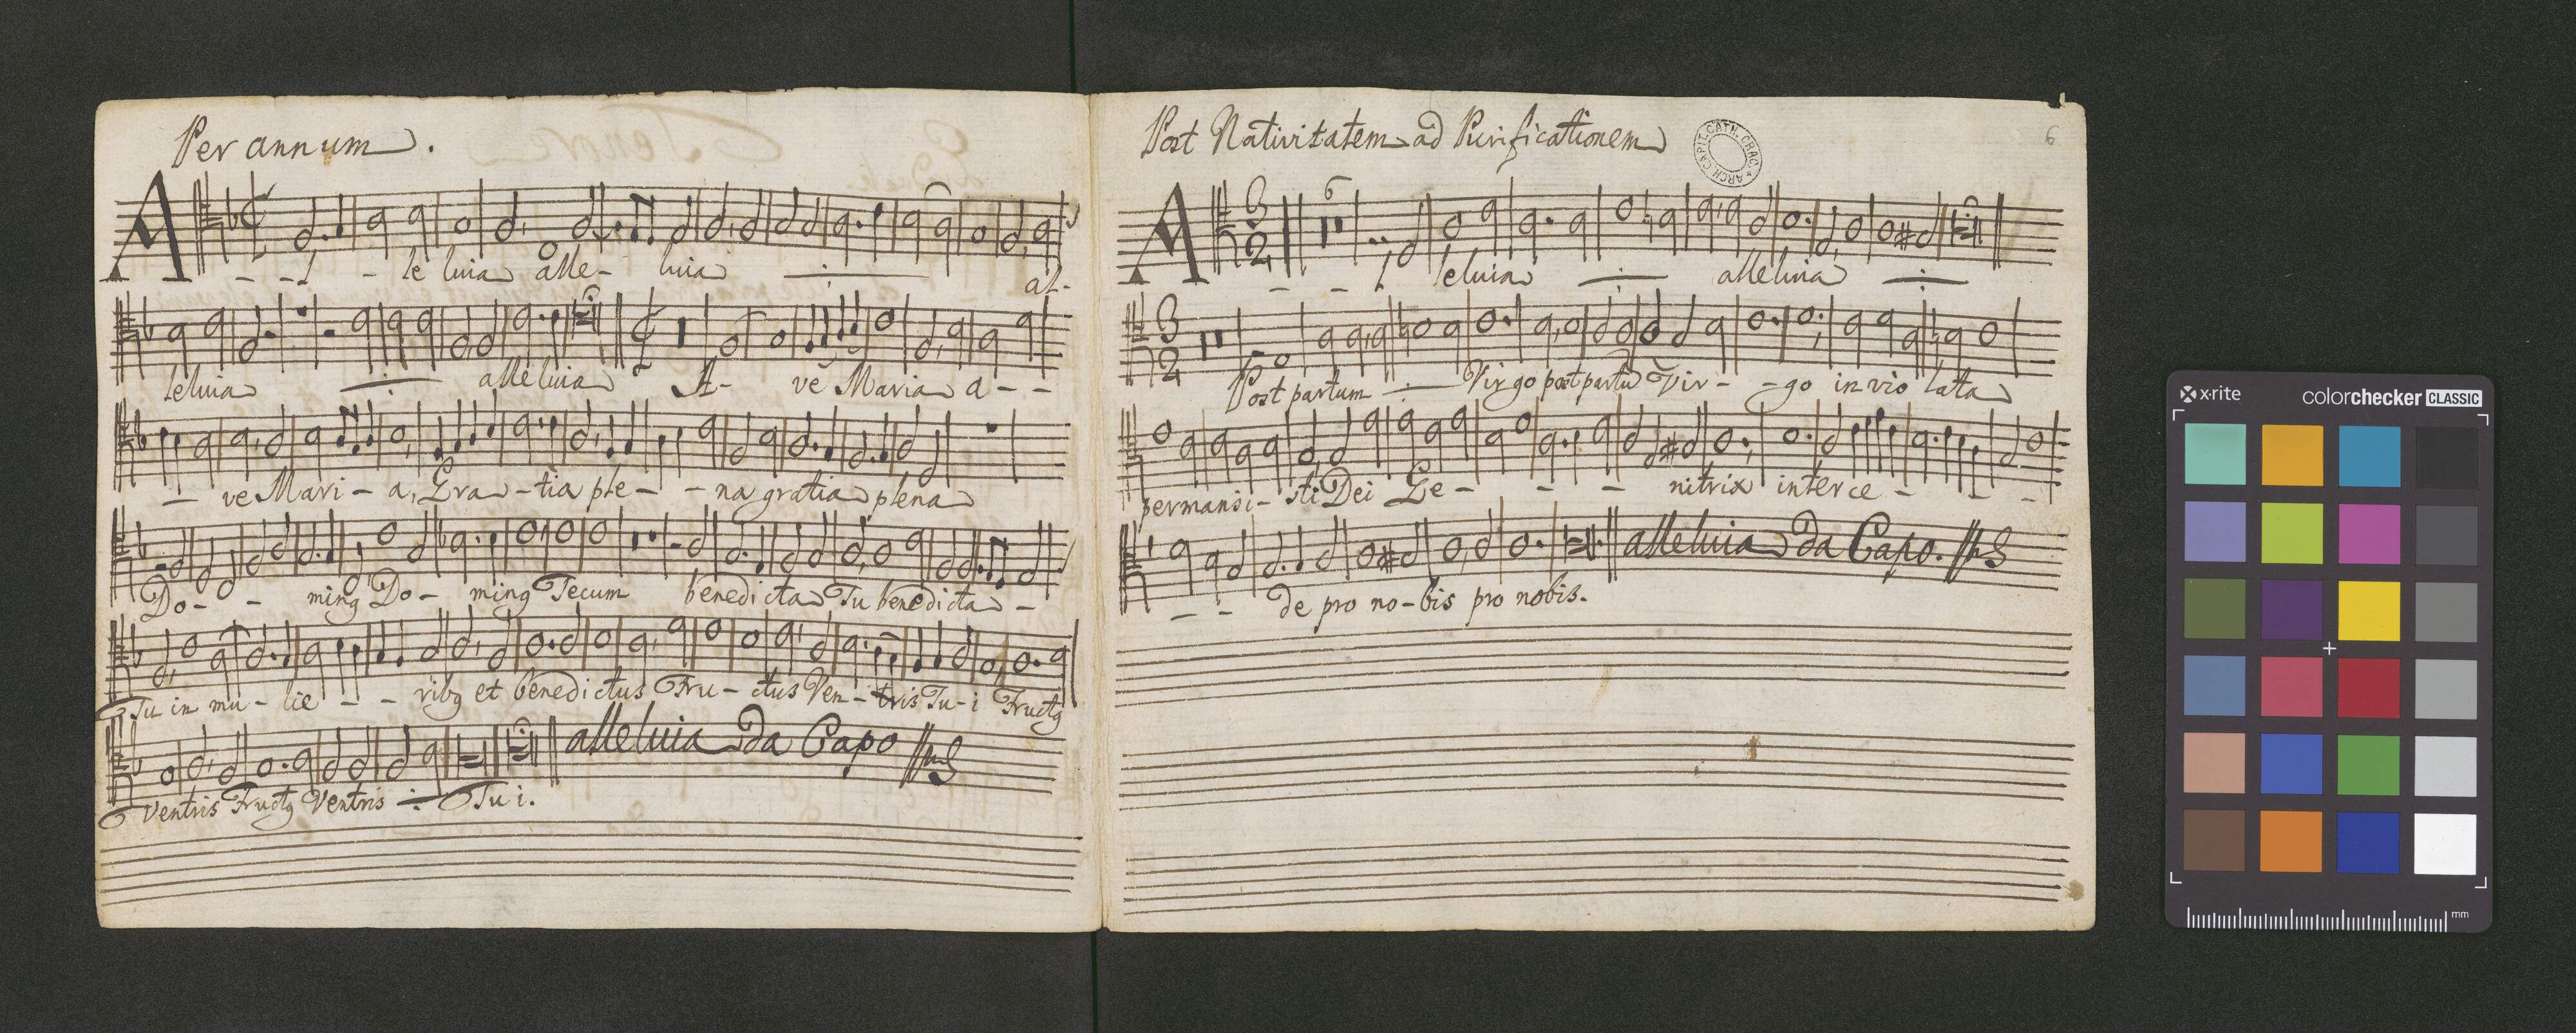 Per annum.
A - - l - le luia alle- luia al-
leluia alleluia A- ve Maria a - -
- ve Mari - a, Gra - tia ple - - na gratia plena
Do - - minę Do - minę Tecum benedicta Tu benedicta -
Tu in mu - lie - - ribꝫ et benedictus Fru - ctus Ven - tris Tu - i Fructꝫ
Ventris Fructꝫ Ventris Tu i.
alleluia da Capo
Post Nativitatem ad Purificationem
ARCH. CAPIT. CATH. CRAC.
6
6
A - - l leluia alleluia
3
2
3
2
Post partum Virgo post partū Vir - - go in vio lata
permansi - sti Dei Ge - - - nitrix interce - - -
- - de pro no - bis pro nobis.
alleluia da Capo.
x·rite
colorchecker CLASSIC
mm